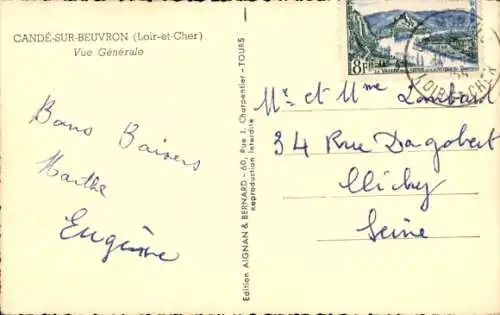 CANDÉ-SUR-BEUVRON (Loir-et-Cher)
Vue Générale
Bons Baisers
Marthe
Eugène
Edition AIGNAN & BERNARD - 60, Rue J. Charpentier - TOURS
Reproduction Interdite
8F
LOIR-ET-CHER
Mr et Mme Lombard
34 Rue Dagobert
Clichy
Seine